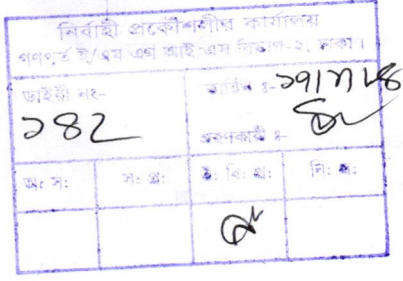 নির্বাহী প্রকৌশলীর কার্যালয়
গণপূর্ত ই/এম এন আই এস বিভাগ-২, ঢাকা।
ডাইরী নং-
তারিখ ঃ-
১৪২
গ্রহণকারী ঃ-
অঃ সঃ
সঃ প্রঃ
উঃ বিঃ প্রঃ
নিঃ প্রঃ